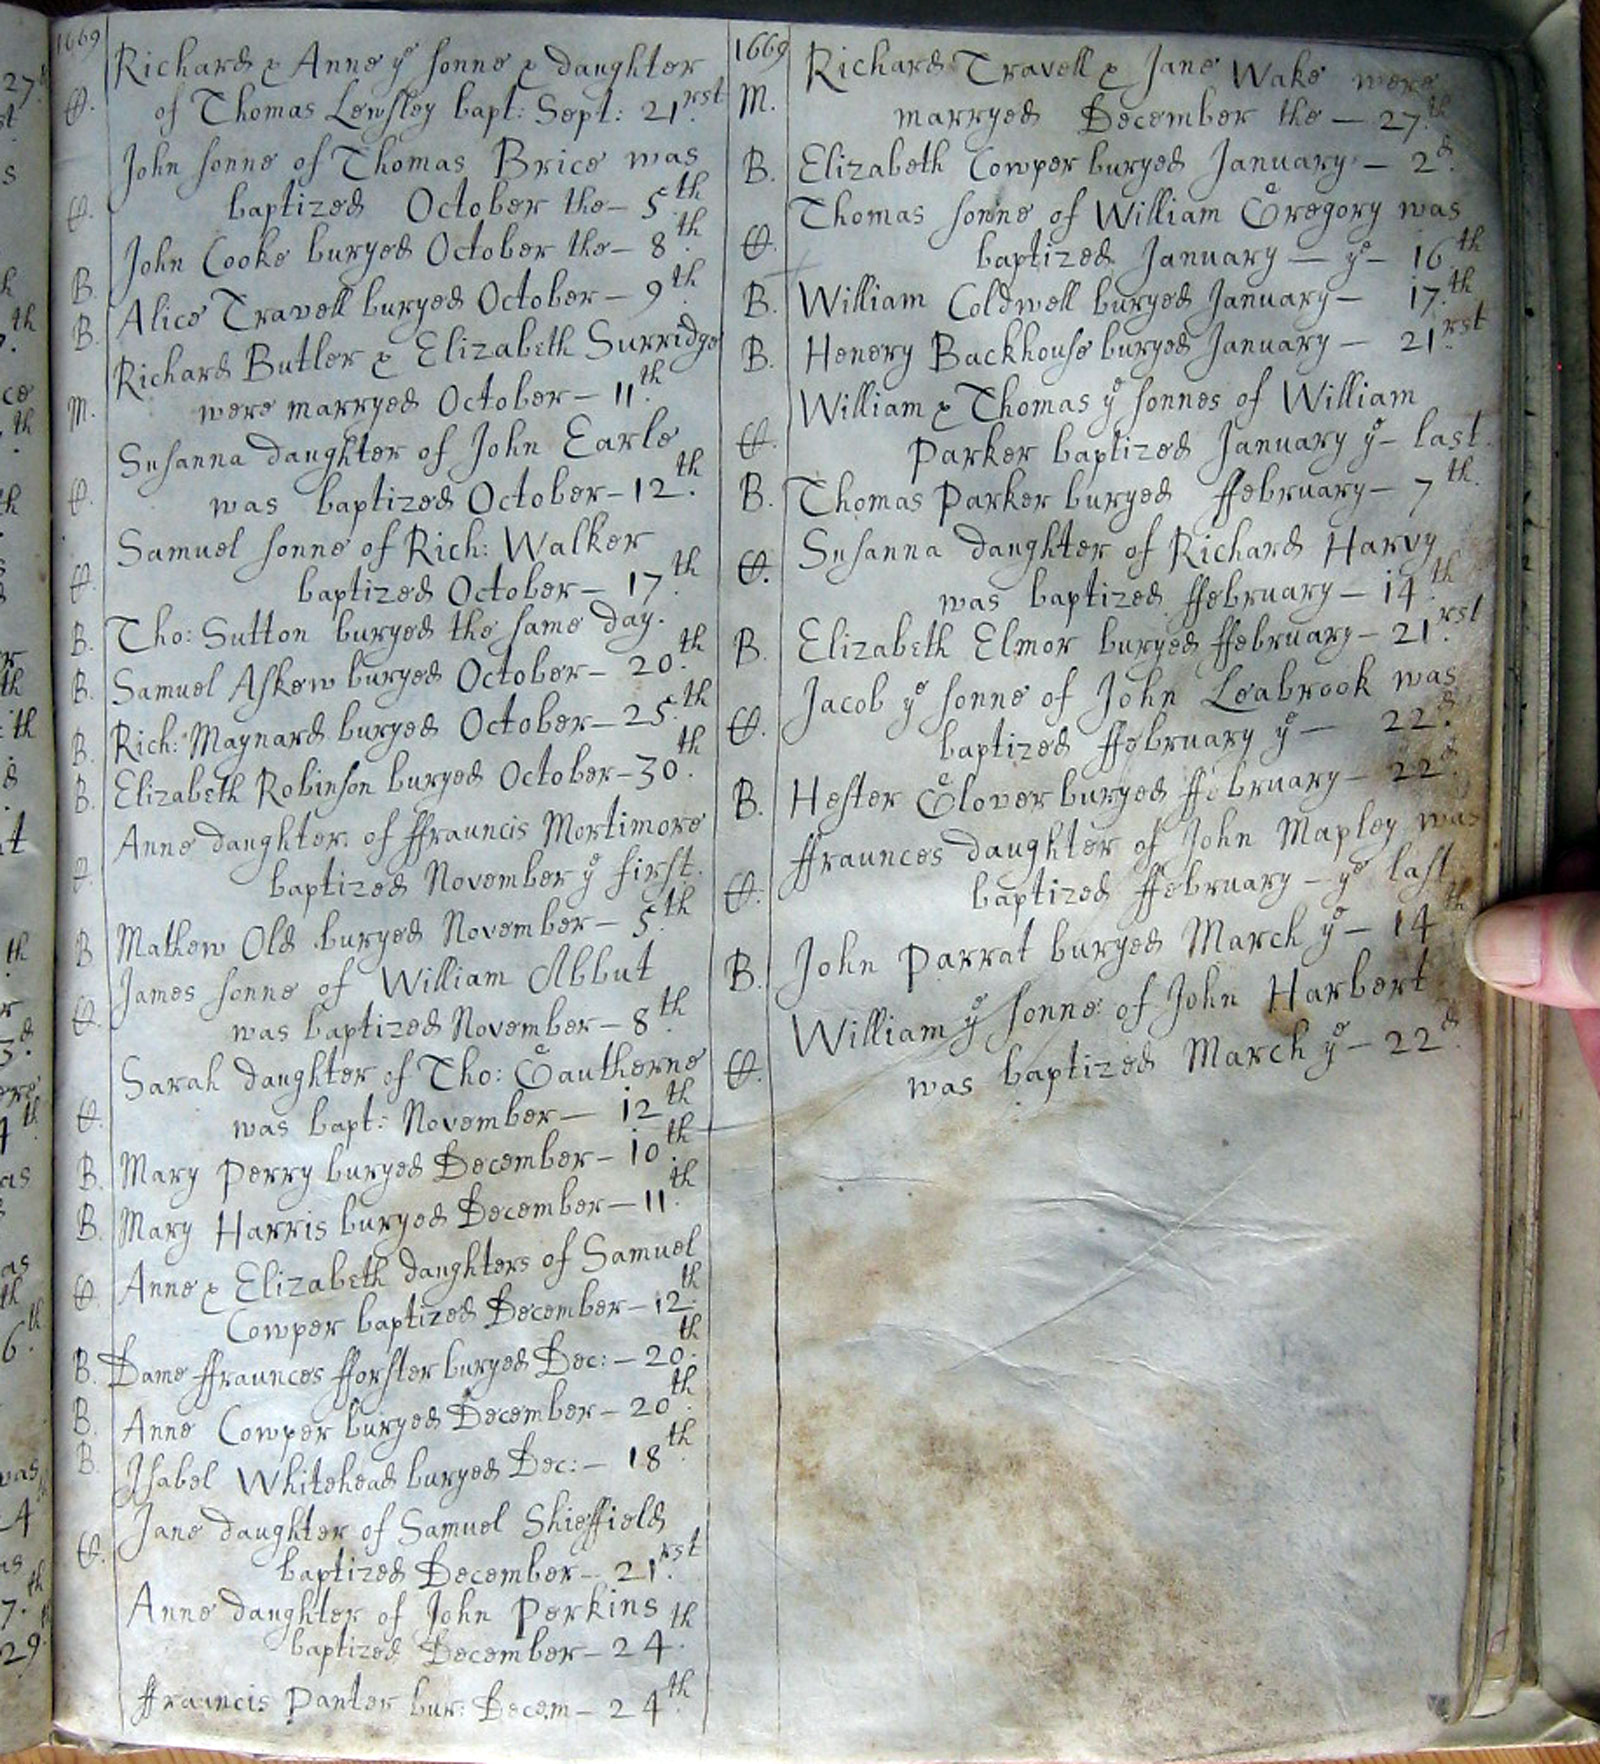 1669
Richard & Anne yᵉ sonne & daughter
of Thomas Lewsley bapt: Sept: 21ʳˢᵗ
John sonne of Thomas Brice was
baptized October the – 5ᵗʰ
B. John Cooke buryed October the – 8ᵗʰ
B. Alice Travell buryed October – 9ᵗʰ
Richard Butler & Elizabeth Surridge
M. were marryed October – 11ᵗʰ
Susanna daughter of John Earle
was baptized October – 12ᵗʰ
Samuel sonne of Rich: Walker
baptized October – 17ᵗʰ
B. Tho: Sutton buryed the same day.
B. Samuel Askew buryed October – 20ᵗʰ
B. Rich: Maynard buryed October – 25ᵗʰ
B. Elizabeth Robinson buryed October – 30ᵗʰ
Anne daughter of ffrauncis Mortimore
baptized November yᵉ first.
B Mathew Old buryed November – 5ᵗʰ
James sonne of William Abbut
was baptized November – 8ᵗʰ
Sarah daughter of Tho: Gautherne
was bapt: November – 12ᵗʰ
B. Mary Perry buryed December – 10ᵗʰ
B. Mary Harris buryed December – 11ᵗʰ
Anne & Elizabeth daughters of Samuel
Cowper baptized December – 12ᵗʰ
B. Dame ffraunces fforster buryed Dec: – 20ᵗʰ
B. Anne Cowper buryed December – 20ᵗʰ
B. Isabel Whitehead buryed Dec: – 18ᵗʰ
Jane daughter of Samuel Shieffield
baptized December – 21ʳˢᵗ
Anne daughter of John Perkins
baptized December – 24ᵗʰ
ffrauncis Panter bur: Decem – 24ᵗʰ
1669
Richard Travell & Jane Wake were
M. marryed December the – 27ᵗʰ
B. Elizabeth Cowper buryed January – 2ᵈ
Thomas sonne of William Gregory was
baptized January – yᵉ – 16ᵗʰ
B. William Coldwell buryed January – 17ᵗʰ
B. Henery Backhouse buryed January – 21ʳˢᵗ
William & Thomas yᵉ sonnes of William
Parker baptized January yᵉ – last.
B. Thomas Parker buryed ffebruary – 7ᵗʰ
Susanna daughter of Richard Harvy
was baptized ffebruary – 14ᵗʰ
B. Elizabeth Elmor buryed ffebruary – 21ʳˢᵗ
Jacob yᵉ sonne of John Leabrook was
baptized ffebruary yᵉ – 22ᵈ
B. Hester Glover buryed ffebruary – 22ᵈ
ffraunces daughter of John Mapley was
baptized ffebruary – yᵉ last
B. John Parrat buryed March yᵉ – 14ᵗʰ
William yᵉ sonne of John Harbert
was baptized March yᵉ – 22ᵈ